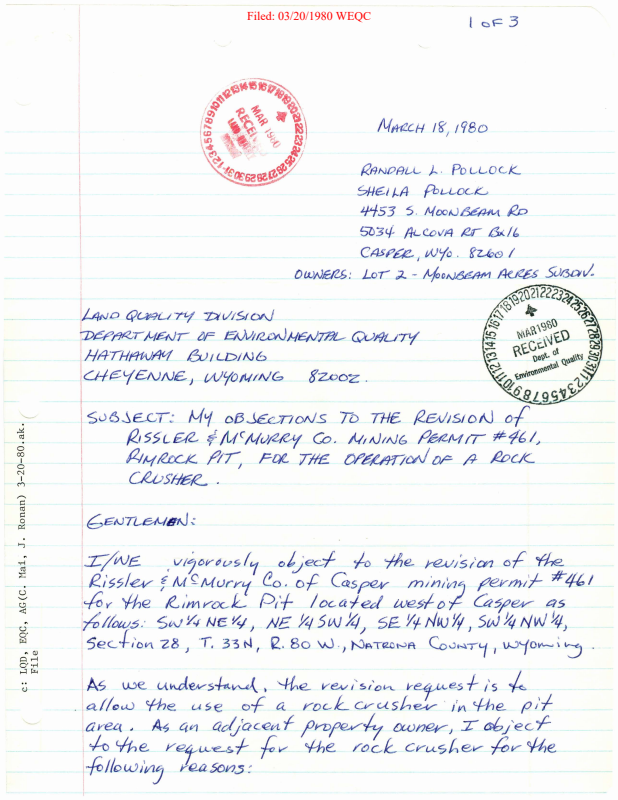 Filed: 03/20/1980 WEQC
1 OF 3
MARCH 18, 1980
RANDALL L. POLLOCK
SHEILA POLLOCK
4453 S. MOONBEAM RD
5034 ALCOVA RT BX16
CASPER, WYO. 82601
OWNERS: LOT 2 - MOONBEAM ACRES SUBDIV.
MAR 1980
RECEIVED
MAR 1980
RECEIVED
Dept. of
Environmental Quality
LAND QUALITY DIVISION
DEPARTMENT OF ENVIRONMENTAL QUALITY
HATHAWAY BUILDING
CHEYENNE, WYOMING 82002.
SUBJECT: MY OBJECTIONS TO THE REVISION OF
RISSLER & McMURRY CO. MINING PERMIT #461,
RIMROCK PIT, FOR THE OPERATION OF A ROCK
CRUSHER.
GENTLEMEN:
I/WE vigorously object to the revision of the
Rissler & McMurry Co. of Casper mining permit #461
for the Rimrock Pit located west of Casper as
follows: SW 1/4 NE 1/4, NE 1/4 SW 1/4, SE 1/4 NW 1/4, SW 1/4 NW 1/4,
Section 28, T. 33N, R. 80 W., NATRONA COUNTY, WYOMING.
As we understand, the revision request is to
allow the use of a rock crusher in the pit
area. As an adjacent property owner, I object
to the request for the rock crusher for the
following reasons:
c: LQD, EQC, AG(C. Mai, J. Ronan) 3-20-80.ak.
File